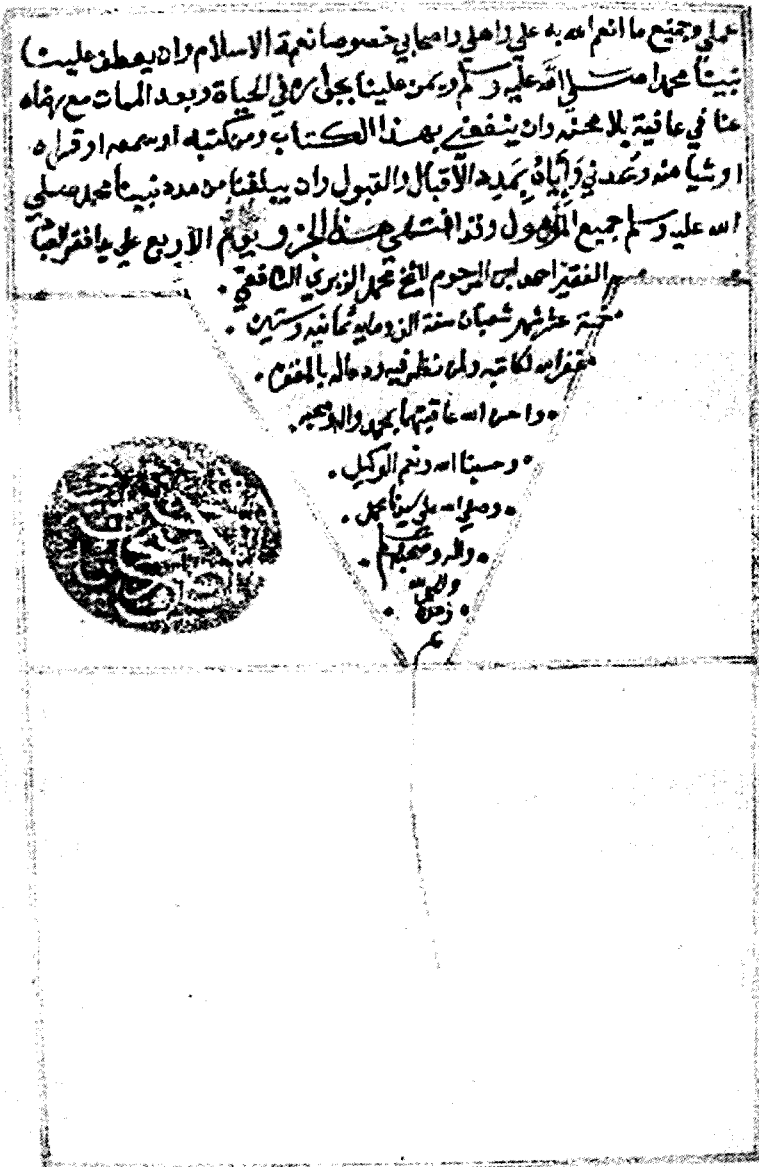 عملي وجميع ما انعم الله به علي واهلي واصحابي خصوصا نعمة الاسلام وان يعطف علينا
نبينا محمدا صلي الله عليه وسلم ويمن علينا بجواره في الحياة وبعد الممات مع رضاه
عنا في عافية بلا محنه وان ينفعني بهذا الكتاب ومن كتبه او سمعه او قراه
او شيا منه ويمدني وَإِيَّاهُ بِمَدِيد الآقبال والقبول وان يبلغنا من مدد نبينا محمد صلي
الله عليه وسلم جميع المأمول وقد انتهي هذا الجزو يوم الاربع علي يد افقر العباد
الفقير احمد ابن المرحوم الشيخ محمد الزبيري الشافعي
خمسة عشر شهر شعبان سنة الف ومايه ثمانيه وستين
غفر الله لكاتبه ولمن نظر فيه ودعا له بالمغفره
واحسن الله عاقبتهما بمحمد واله وصحبه
وحسبنا الله ونعم الوكيل
وصلي الله علي سيدنا محمد
واله وصحبه وسلم